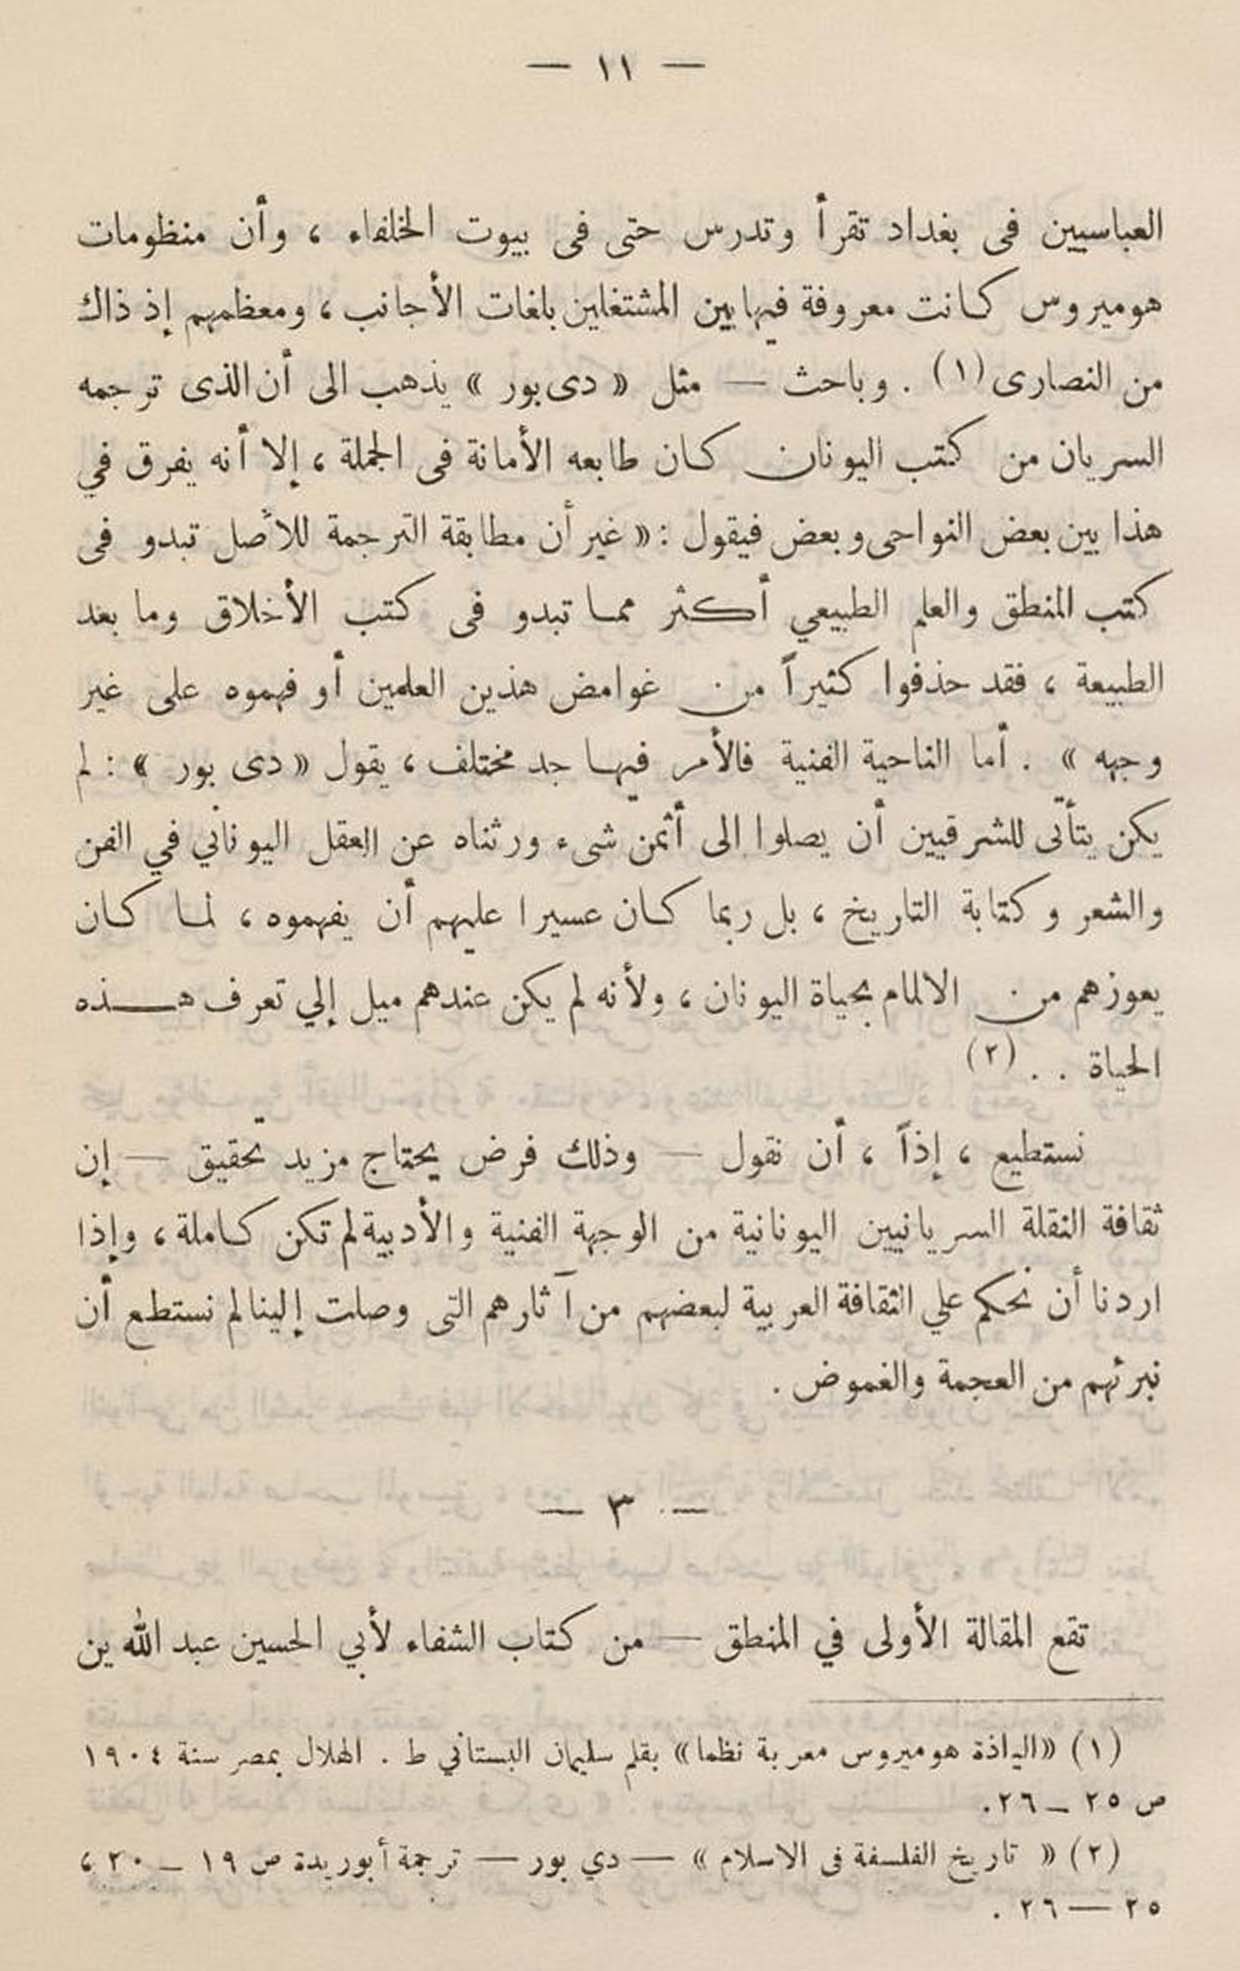 — ١١ —
العباسيين فى بغداد تقرأ وتدرس حتى فى بيوت الخلفاء ، وأن منظومات
هوميروس كانت معروفة فيها بين المشتغلين بلغات الأجانب ، ومعظمهم إذ ذاك
من النصارى (١) . وباحث — مثل « دى بور » يذهب الى أن الذى ترجمه
السريان من كتب اليونان كان طابعه الأمانة فى الجملة ، إلا أنه يفرق في
هذا بين بعض النواحى وبعض فيقول : « غير أن مطابقة الترجمة للأصل تبدو فى
كتب المنطق والعلم الطبيعي أكثر مما تبدو فى كتب الأخلاق وما بعد
الطبيعة ، فقد حذفوا كثيراً من غوامض هذين العلمين أو فهموه على غير
وجهه » . أما الناحية الفنية فالأمر فيها جد مختلف ، يقول « دى بور » : لم
يكن يتأتى للشرقيين أن يصلوا الى أثمن شىء ورثناه عن العقل اليوناني في الفن
والشعر وكتابة التاريخ ، بل ربما كان عسيرا عليهم أن يفهموه ، لما كان
يعوزهم من الالمام بحياة اليونان ، ولأنه لم يكن عندهم ميل إلي تعرف هذه
الحياة . . (٢)
نستطيع ، إذاً ، أن نقول — وذلك فرض يحتاج مزيد تحقيق — إن
ثقافة النقلة السريانيين اليونانية من الوجهة الفنية والأدبية لم تكن كاملة ، وإذا
اردنا أن نحكم علي الثقافة العربية لبعضهم من آثارهم التى وصلت إلينا لم نستطع أن
نبرئهم من العجمة والغموض .
— ٣ —
تقع المقالة الأولى في المنطق — من كتاب الشفاء لأبي الحسين عبد الله ين
(١) «الياذة هوميروس معربة نظما» بقلم سليمان البستاني ط . الهلال بمصر سنة ١٩٠٤
ص ٢٥ — ٢٦.
(٢) « تاريخ الفلسفة فى الاسلام » — دي بور — ترجمة أبوريدة ص ١٩ — ٢٠ ،
٢٥ — ٢٦ .